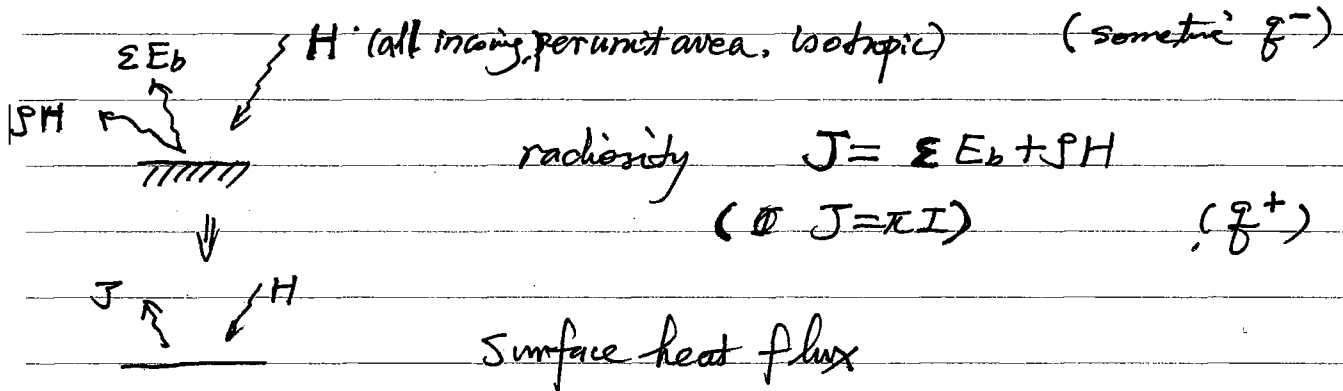 H (all incoming, per unit area, isotropic) (sometime q⁻)
εEb
ρH
radiosity J = εEb + ρH
(J = πI) (q⁺)
J H
surface heat flux